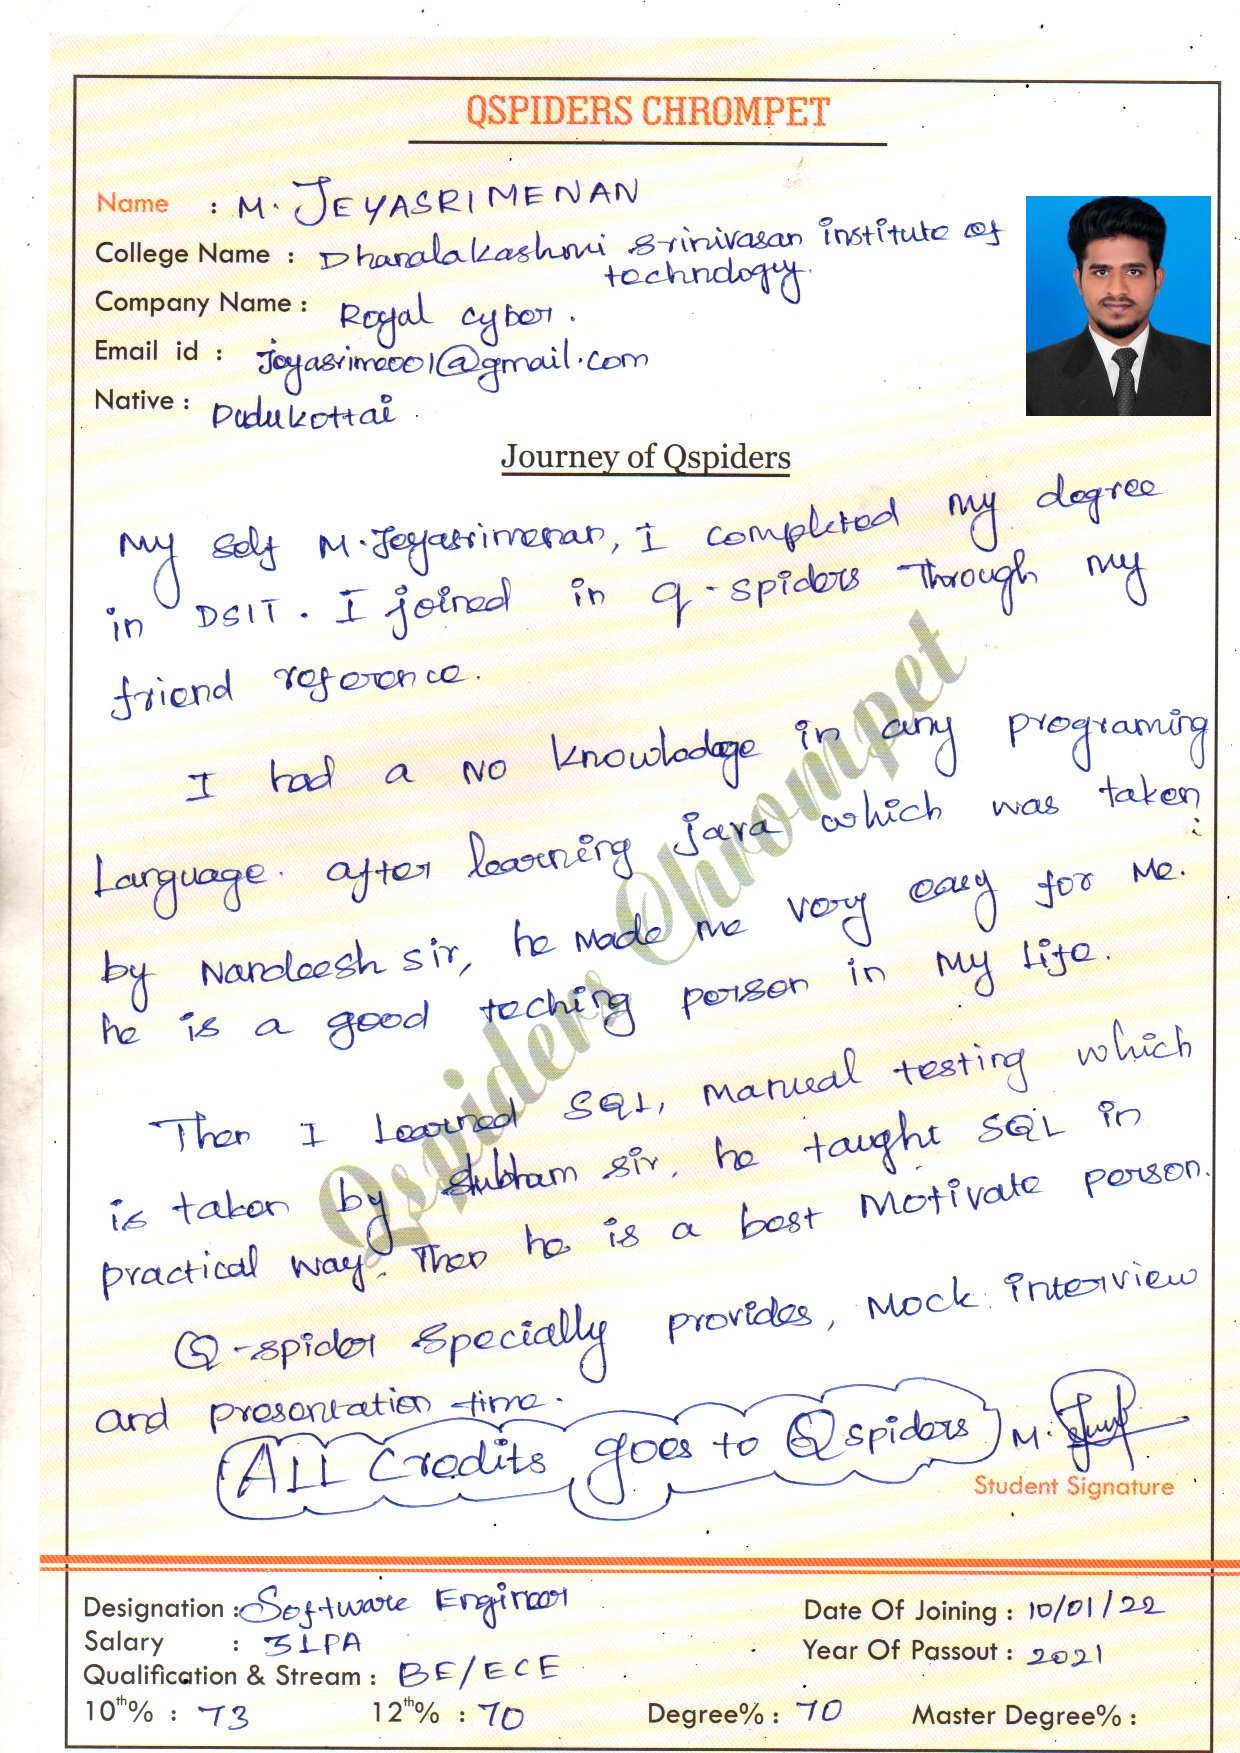 QSPIDERS CHROMPET
Name : M. JEYASRIMENAN
College Name : Dhanalakashmi Srinivasan institute of
technology.
Company Name : Royal cyber.
Email id : jeyasrime001@gmail.com
Native : Pudukottai
Journey of Qspiders
My self M. Jeyasrimenan, I completed my degree
in DSIT. I joined in q-spiders Through my
friend reference.
I had a no knowladage in any programing
Language. after learning java which was taken
by Nandeesh sir, he made me very easy for me.
he is a good teching person in my life.
Then I Learned SQL, manual testing which
is taken by shubham sir, he taught SQL in
practical way. Then he is a best Motivate person.
Q-spider specially provides, Mock interview
and presentation time.
ALL Credits goes to Qspiders
M.
Student Signature
Qspiders Chrompet
Designation : Software Engineer
Date Of Joining : 10/01/22
Salary : 3LPA
Year Of Passout : 2021
Qualification & Stream : BE/ECE
10th% : 73 12th% : 70 Degree% : 70 Master Degree% :